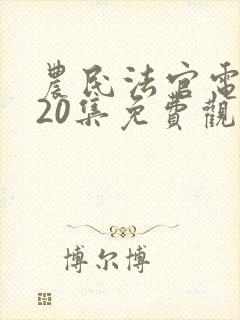 農民法官電
20集免費觀
博尔博